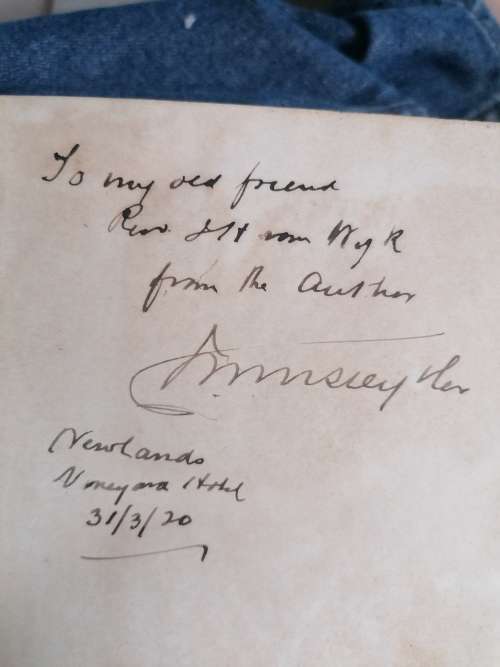 To my old friend
Rev. J H van Wyk
from the Author
Newlands
Vineyard Hotel
31/3/20